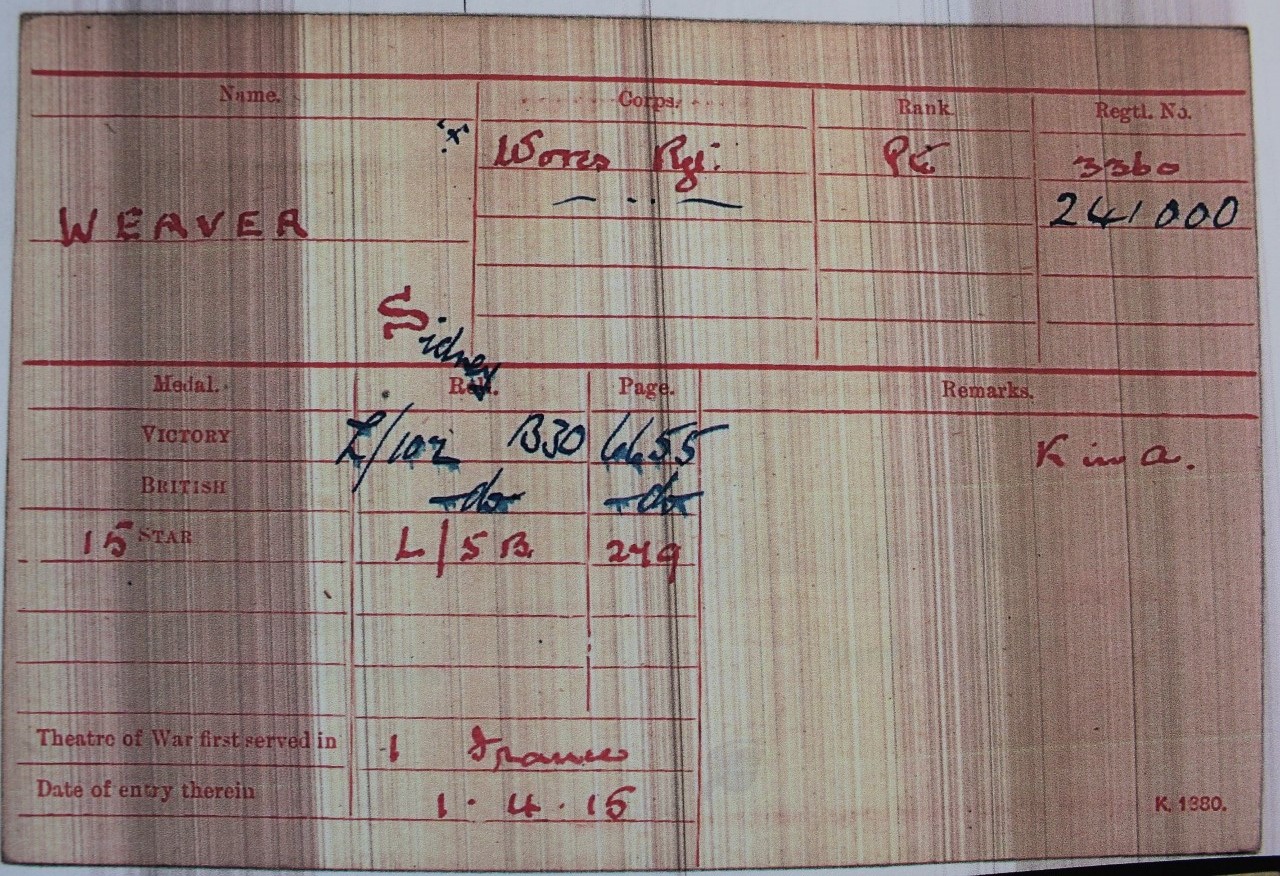 Name. Corps. Rank. Regtl. No.
'x' Worcs Rgt. Pte 3360
— .. — 241000
WEAVER
Sidney
Medal. Roll. Page. Remarks.
VICTORY L/102 B30 6655
BRITISH -do- -do- K in a.
15 STAR L/5B 249
Theatre of War first served in 1 France
Date of entry therein 1.4.15
K. 1380.